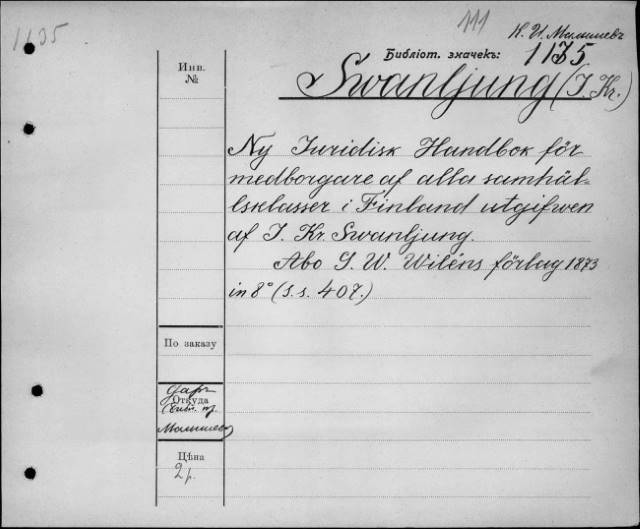 1135
111
К. И. Малышевъ
Библіот. значекъ:
1135
Инв.
№
Swanljung (I. Kr.)
Ny Iuridisk Handbok för
medborgare af alla samhäl-
lsklasser i Finland utgifwen
af I. Kr. Swanljung.
Abo G. W. Wiléns förlag 1873
in 8° (s.s. 407.)
По заказу
Даръ
Откуда
Малышева
Цѣна
2 р.